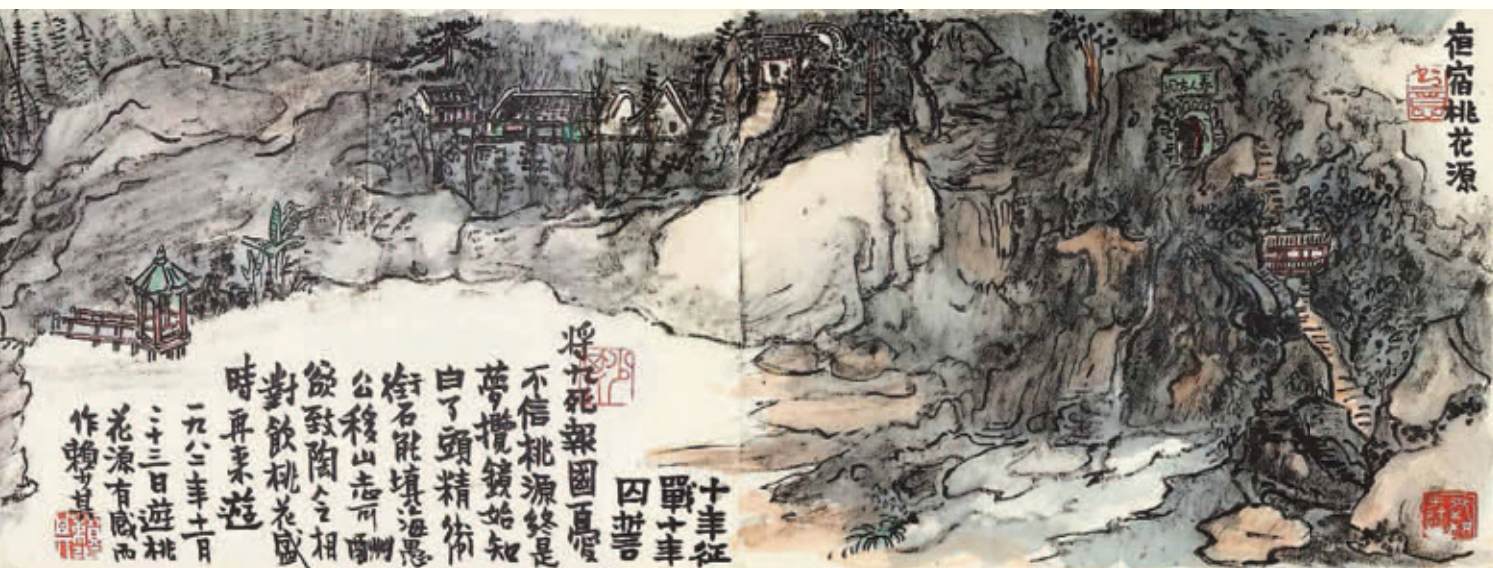 夜宿桃花源
十年征
戰十年
囚誓
將九死報國憂
不信桃源終是
夢攬鏡始知
白了頭精衛
銜石能填海愚
公移山志可酬
欲致陶令相
對飲桃花盛
時再来遊
一九八二年十一月
二十三日遊桃
花源有感而
作賴少其